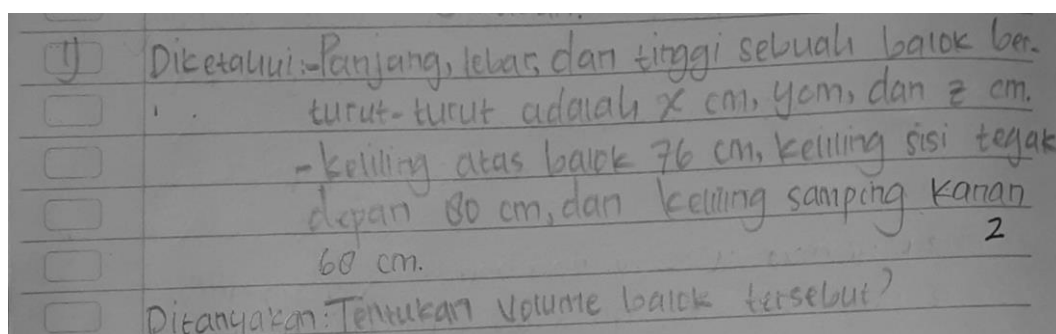 1) Diketahui:-Panjang, lebar, dan tinggi sebuah balok ber-
turut-turut adalah x cm, y cm, dan z cm.
-Keliling atas balok 76 cm, keliling sisi tegak
depan 80 cm, dan keliling samping kanan
2
60 cm.
Ditanyakan: Tentukan volume balok tersebut?